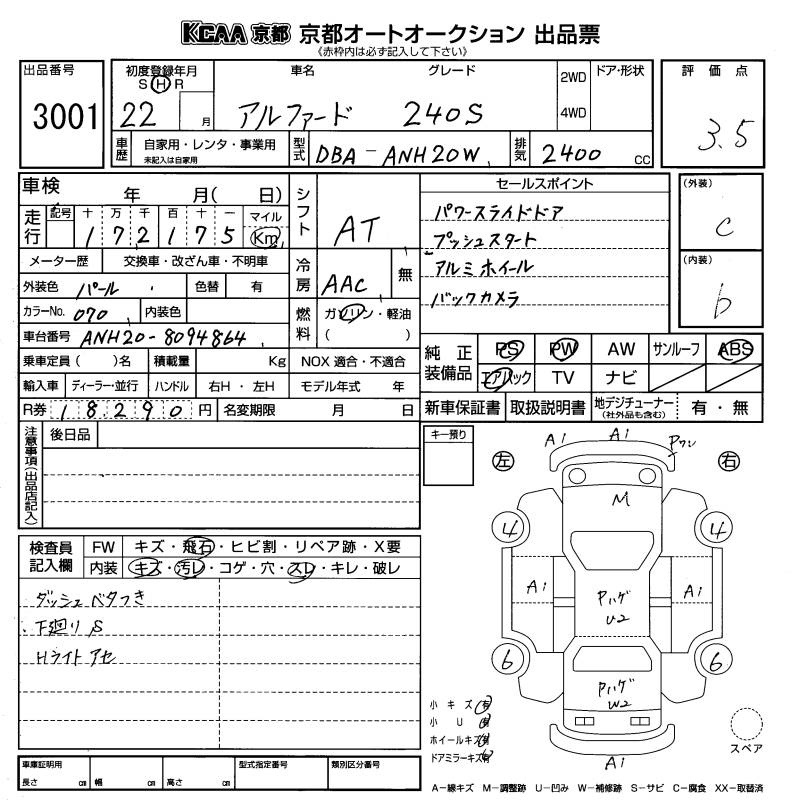 KCAA 京都 京都オートオークション 出品票
《赤枠内は必ず記入して下さい》
出品番号 3001
初度登録年月 S H R 22 月
車名 アルファード
グレード 240S
2WD 4WD
ドア・形状
評価点 3.5
車歴 自家用・レンタ・事業用 未記入は自家用
型式 DBA-ANH20W
排気 2400 CC
車検 年 月( 日)
走行 記号 十 万 千 百 十 一 マイル
172175 Km
メーター歴 交換車・改ざん車・不明車
外装色 パール 色替 有
カラーNo. 070 内装色
車台番号 ANH20-8094864
乗車定員 ( )名 積載量 Kg NOX 適合・不適合
輸入車 ディーラー・並行 ハンドル 右H・左H モデル年式 年
R券 18290円 名変期限 月 日
シフト AT
冷房 AAC 無
燃料 ガソリン・軽油 ( )
セールスポイント
パワースライドドア
プッシュスタート
アルミホイール
バックカメラ
(外装) C
(内装) b
純正装備品 PS PW AW サンルーフ ABS
エアバック TV ナビ
新車保証書 取扱説明書 地デジチューナー (社外品も含む) 有・無
注意事項(出品店記入)
後日品
キー預り
検査員記入欄 FW キズ・飛石・ヒビ割・リペア跡・X要
内装 キズ・汚レ・コゲ・穴・スレ・キレ・破レ
ダッシュベタつき
下廻りS
Hライトアセ
左 右
A1 A1 Pワレ
M
4 4
A1 Pハゲ U2 A1
6 6
Pハゲ W2
A1
小キズ(有)
小U(有)
ホイールキズ(有)
ドアミラーキズ(有)
スペア
車庫証明用 長さ cm 幅 cm 高さ cm
型式指定番号 類別区分番号
A-線キズ M-調整跡 U-凹み W-補修跡 S-サビ C-腐食 XX-取替済